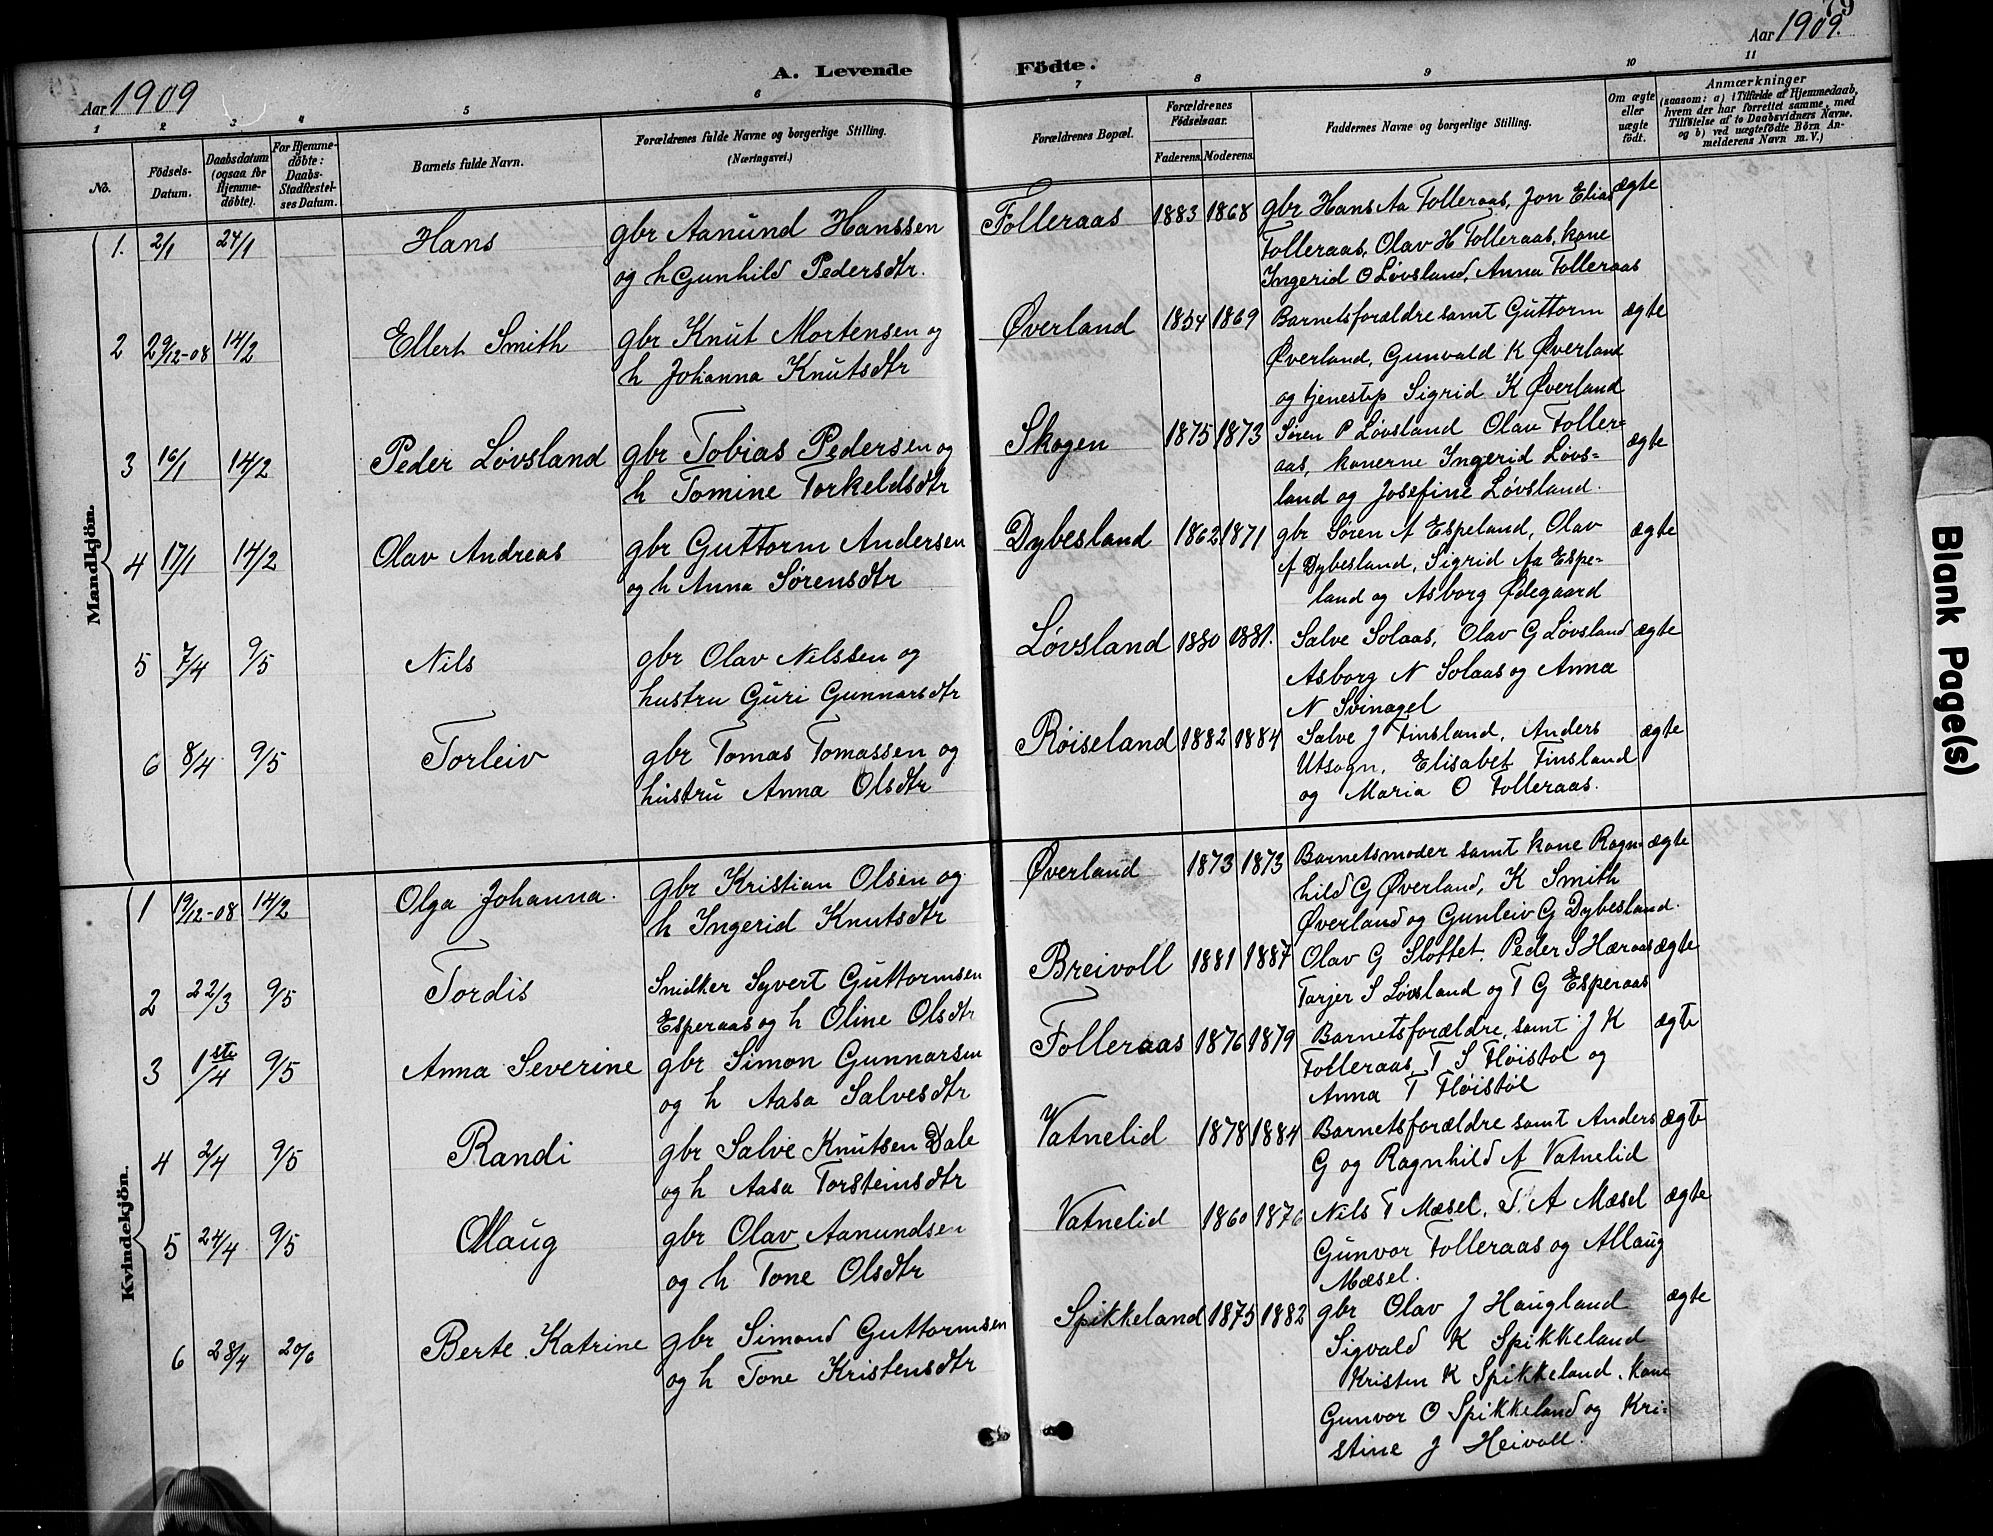 79
Aar 1909
A. Levende Födte.
Aar 1909.
1 2 3 4 5 6 7 8 9 10 11
No.
Födsels-
Datum.
Daabsdatum
(ogsaa for
Hjemme-
döbte).
For Hjemme-
döbte:
Daabs-
Stadfæstel-
ses Datum.
Barnets fulde Navn.
Forældrenes fulde Navne og borgerlige Stilling.
(Næringsvei.)
Forældrenes Bopæl.
Forældrenes
Födselsaar.
Faderens. Moderens.
Faddernes Navne og borgerlige Stilling.
Om ægte
eller
uægte
födt.
Anmærkninger
(saasom: a) i Tilfælde af Hjemmedaab,
hvem der har forrettet samme, med
Tilföielse af to Daabsvidners Navne,
og b) ved uægtefödte Börn An-
melderens Navn m. V.)
Mandkjön.
1. 2/1 24/1 Hans gbr Aanund Hanssen Tolleraas 1883 1868 gbr Hans Aa Tolleraas, Jon Elias ægte
og h Gunhild Pedersdtr. Tolleraas, Olav H Tolleraas, kone
Ingerid O Løvsland, Anna Tolleraas
2 29/12-08 14/2 Ellert Smith gbr Knut Mortensen og Øverland 1854 1869 Barnetsforældre samt Guttorm ægte
h Johanna Knutsdtr Øverland, Gunvald K Øverland
og tjenestep Sigrid K Øverland
3 16/1 14/2 Peder Løvsland gbr Tobias Pedersen og Skogen 1875 1873 Søren P Løvsland Olav Toller- ægte
h Tomine Torkeldsdtr aas, konerne Ingerid Løvs-
land og Josefine Løvsland.
4 17/1 14/2 Olav Andreas gbr Guttorm Andersen Dybesland 1862 1871 gbr Søren A Espeland, Olav ægte
og h Anna Sørensdtr A Dybesland, Sigrid Aa Espe-
land og Asborg Ødegaard
5 7/4 9/5 Nils gbr Olav Nilssen og Løvsland 1880 1881. Salve Solaas, Olav G Løvsland ægte
hustru Guri Gunnarsdtr Asborg N Solaas og Anna
N Svinagel
6 8/4 9/5 Torleiv gbr Tomas Tomassen og Røiseland 1882 1884 Salve J Finsland, Anders ægte
hustru Anna Olsdtr Utsogn, Elisabet Finsland
og Maria O Tolleraas.
Kvindekjön.
1 19/12-08 14/2 Olga Johanna. gbr Kristian Olsen og Øverland 1873 1873 Barnetsmoder samt kone Ragn- ægte
h Ingerid Knutsdtr hild G Øverland, K Smith
Øverland og Gunleiv G Dybesland.
2 22/3 9/5 Tordis Snidker Syvert Guttormsen Breivoll 1881 1887 Olav G Slottet, Peder S Hæraas ægte
Esperaas og h Oline Olsdtr Tarjer S Løvsland og T G Esperaas
3 1ste/4 9/5 Anna Severine gbr Simon Gunnarsen Tolleraas 1876 1879 Barnetsforældre, samt J K ægte
og h Aasa Salvesdtr Tolleraas, T S Fløistøl og
Anna T Fløistøl
4 2/4 9/5 Randi gbr Salve Knutsen Dale Vatnelid 1878 1884 Barnetsforældre samt Anders ægte
og h Aasa Torsteinsdtr G og Ragnhild A Vatnelid
5 24/4 9/5 Ollaug gbr Olav Aanundsen Vatnelid 1860 1876 Nils T Mæsel, T. A Mæsel ægte
og h Tone Olsdtr Gunvor Tolleraas og Allaug
Mæsel.
6 28/4 20/6 Berte Katrine gbr Simond Guttormsen Spikkeland 1875 1882 gbr Olav J Haugland ægte
og h Tone Kristensdtr Sigvald K Spikkeland
Kristen K Spikkeland, kone
Gunvor O Spikkeland og Kri-
stine J Heivoll.
Blank Page(s)